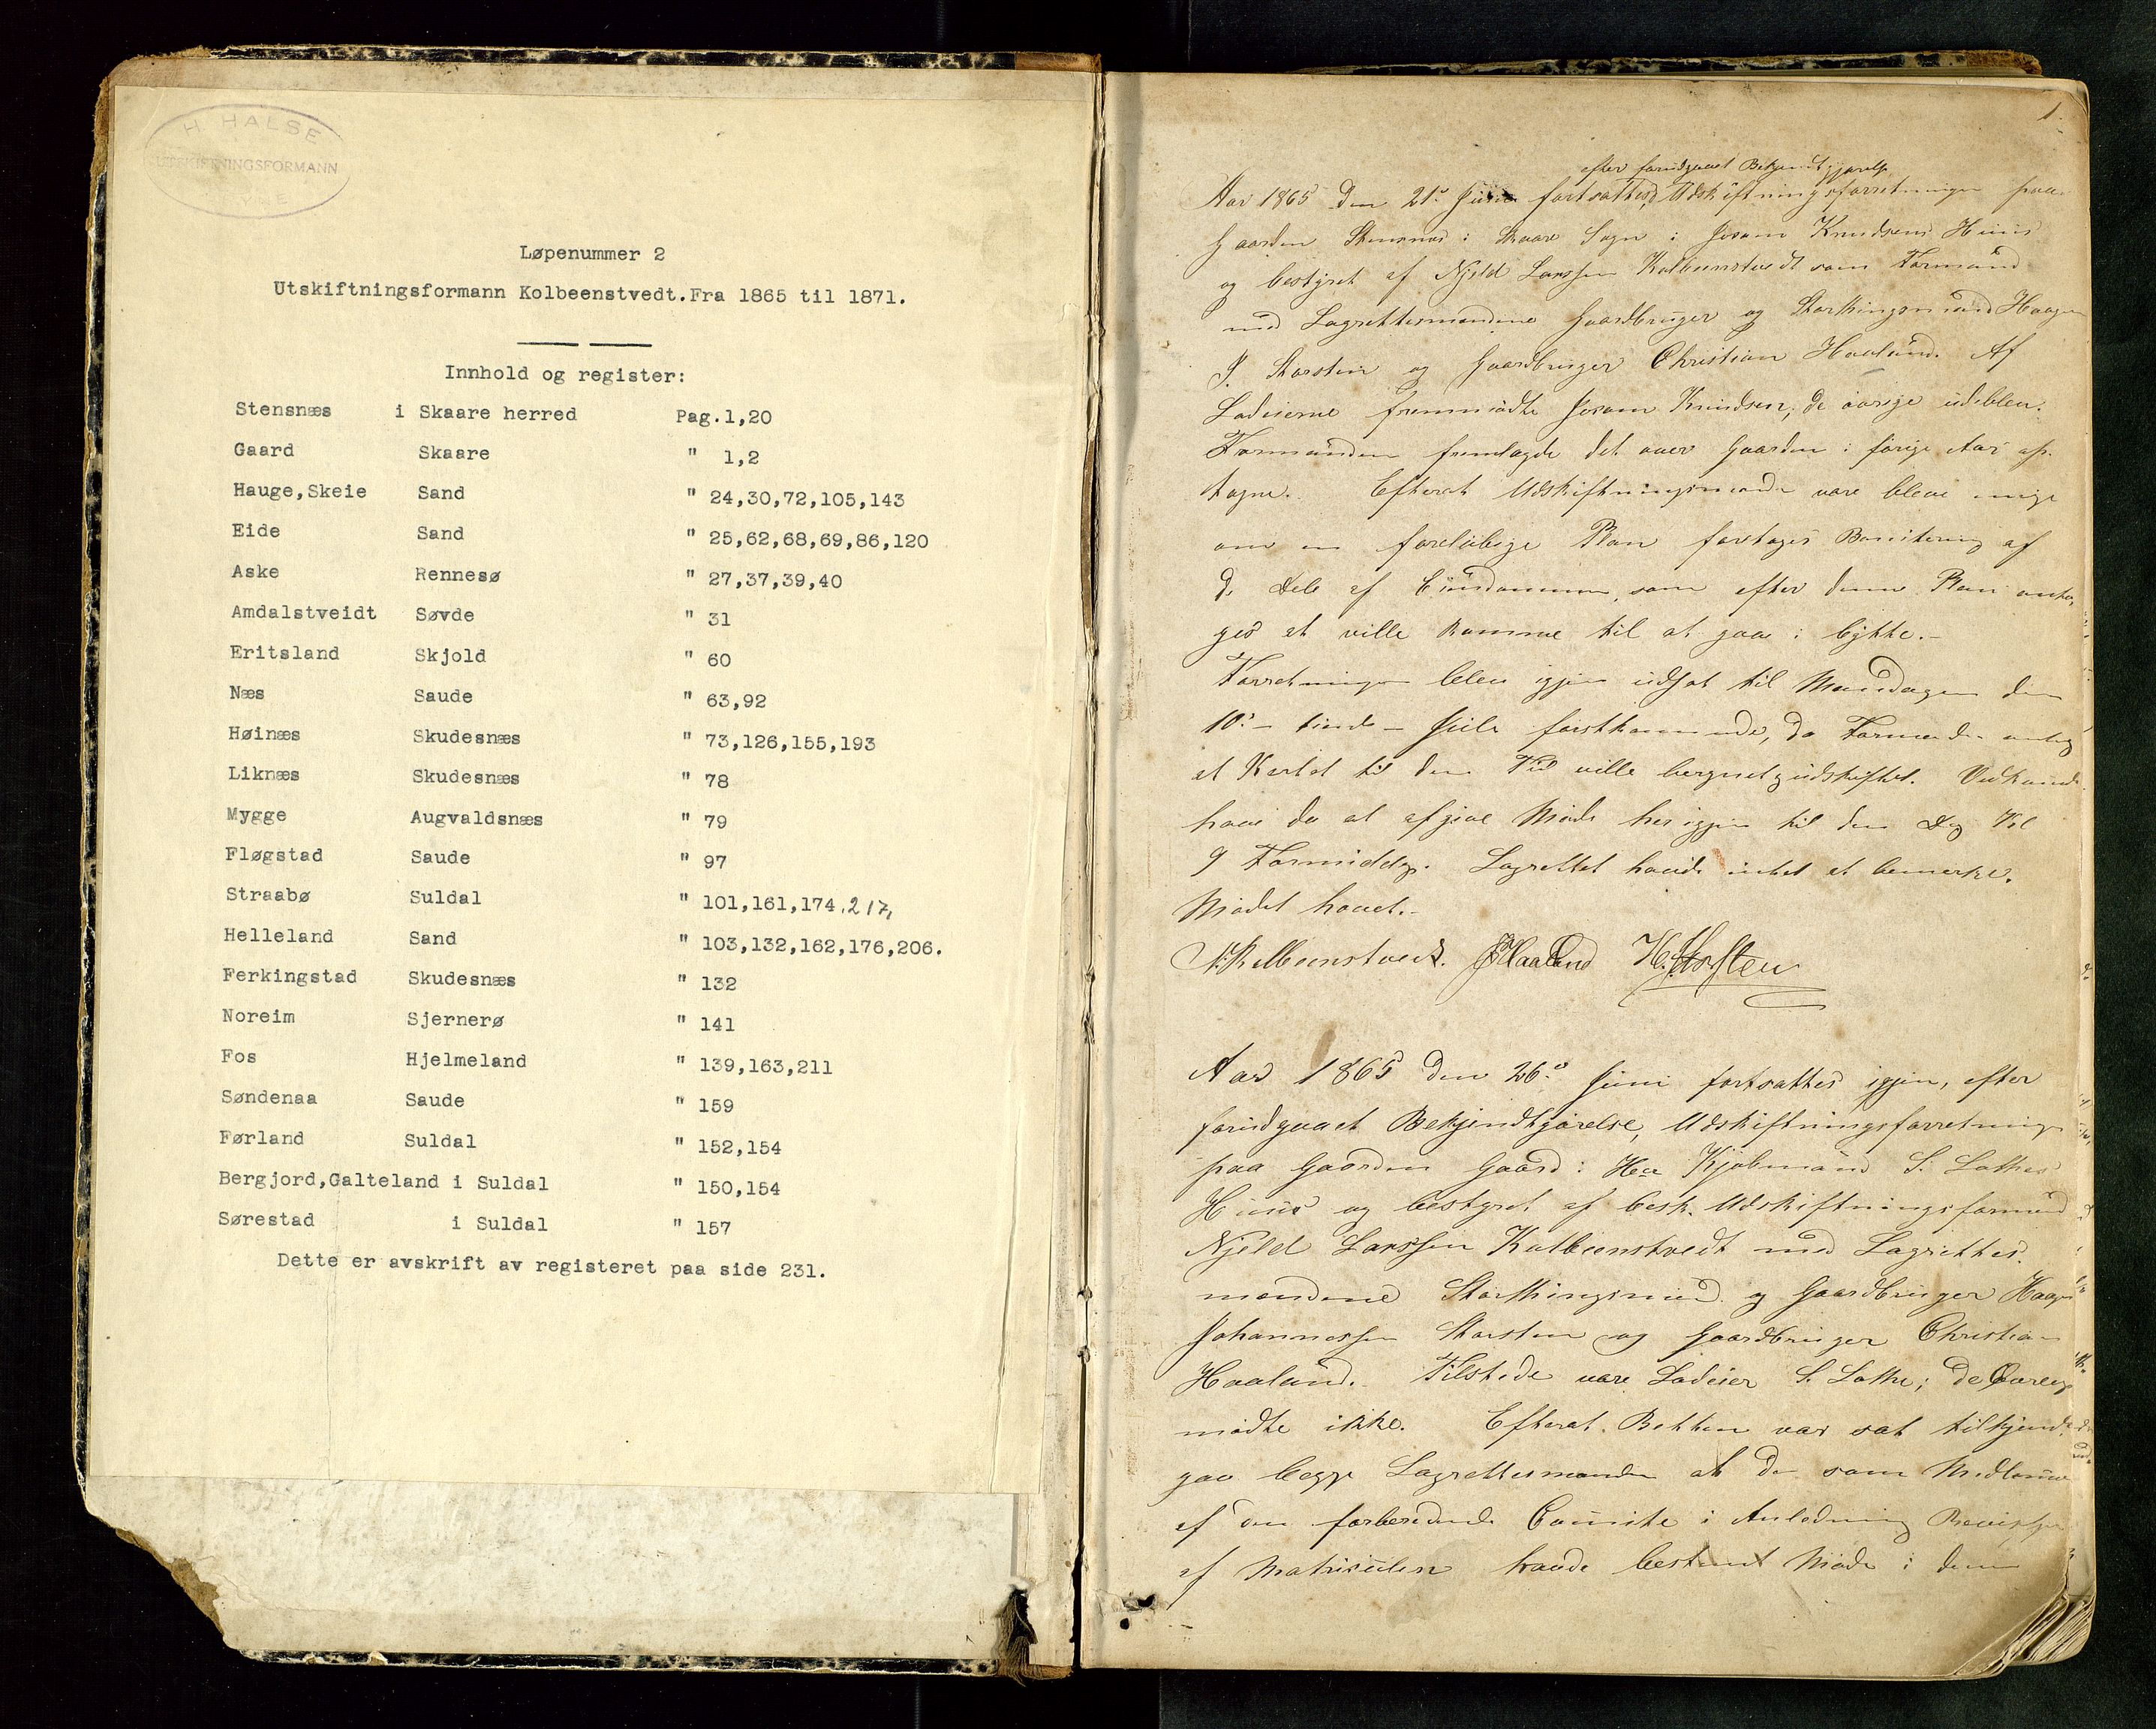 H HALSE
UTSKIFTNINGSFORMANN
Løpenummer 2
Utskiftningsformann Kolbeenstvedt.Fra 1865 til 1871.
Innhold og register:
Stensnæs i Skaare herred Pag.1,20
Gaard Skaare " 1,2
Hauge,Skeie Sand " 24,30,72,105,143
Eide Sand " 25,62,68,69,86,120
Aske Rennesø " 27,37,39,40
Amdalstveidt Søvde " 31
Eritsland Skjold " 60
Næs Saude " 63,92
Høinæs Skudesnæs " 73,126,155,193
Liknæs Skudesnæs " 78
Mygge Augvaldsnæs " 79
Fløgstad Saude " 97
Straabø Suldal " 101,161,174,217,
Helleland Sand " 103,132,162,176,206.
Ferkingstad Skudesnæs " 132
Noreim Sjernerø " 141
Fos Hjelmeland " 139,163,211
Søndenaa Saude " 159
Førland Suldal " 152,154
Bergjord,Galteland i Suldal " 150,154
Sørestad i Suldal " 157
Dette er avskrift av registeret paa side 231.
1.
efter foregaaet Bekjendtgjørelse
Aar 1865 den 21de Juni fortsattes Udskiftningsforretningen paa
Gaarden Stensnæs i Skaare Sogn i Josam Knudsens Huus
og bestyret af Njeld Larssen Kolbeenstvedt som Formand
med Lagrettesmændene Gaardbruger og Storthingsmand Haagen
J. Storsten og Gaardbruger Christian Haaland. Af
Lodeierne fremmødte Josam Knudsen, de øvrige udebleve.
Formanden fremlagde det over Gaarden i forige Aar op-
tagne. Efterat Udskiftningsmænde vare bleve enige
om en foreløbige Plan foretoges Bonitering af
de Dele af Eiendommen, som efter denne Plan anto-
ges at ville komme til at gaae i bytte.-
Forretningen blev igjen udsat til Mandagen den
10de - tiende - Juli førstkommende, da Formanden antog
at Kartet til den Tid ville beregnet udskiftet. Vedkomde
have da at afgive Møde her igjen til den Dag Kl
9 Formiddag. Lagrettet havde intet at bemærke.
Mødet hævet.-
N. Kolbeenstvedt. CHaaland H. Storsten
Aar 1865 den 26de Juni fortsattes igjen, efter
forudgaaet Bekjendtgjørelse, Udskiftningsforretning
paa Gaarden Gaard i Hr Kjøbmand S. Lothes
Huus og bestyret af besk. Udskiftningsformand
Njeld Larssen Kolbeenstvedt med Lagrettes-
mændene Storthingsmand og Gaardbruger Haagen
Johannessen Storsten og Gaardbruger Christian
Haaland. Tilstede vare Lodeier S. Lothe; de Øvrige
mødte ikke. Efterat Retten var sat tilkjende
gav begge Lagrettesmænde at de som Medlemme
af den forberedende Comite i Anledning Revision
af Matrikulen havde bestemt Møde i denne